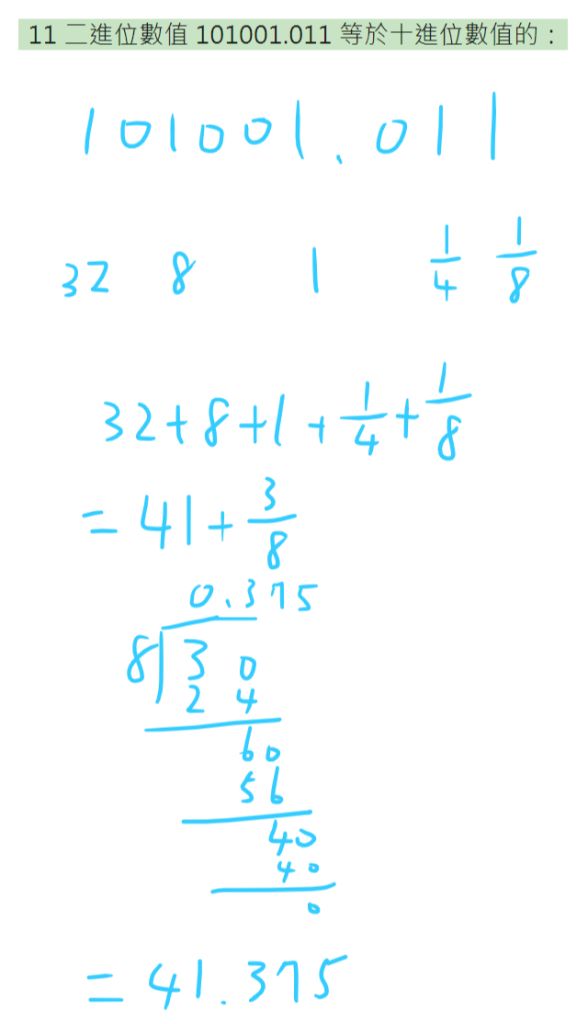 11 二進位數值 101001.011 等於十進位數值的：
101001.011
32 8 1 1/4 1/8
32+8+1+1/4+1/8
=41+3/8
0.375
8 3 0
2 4
60
56
40
40
0
=41.375